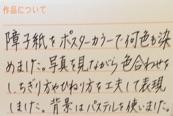 作品について
障子紙をポスターカラーで何色か染
めました。写真を見ながら色合わせを
し、ちぎり方やひねり方を工夫して表現
しました。背景はパステルを使いました。